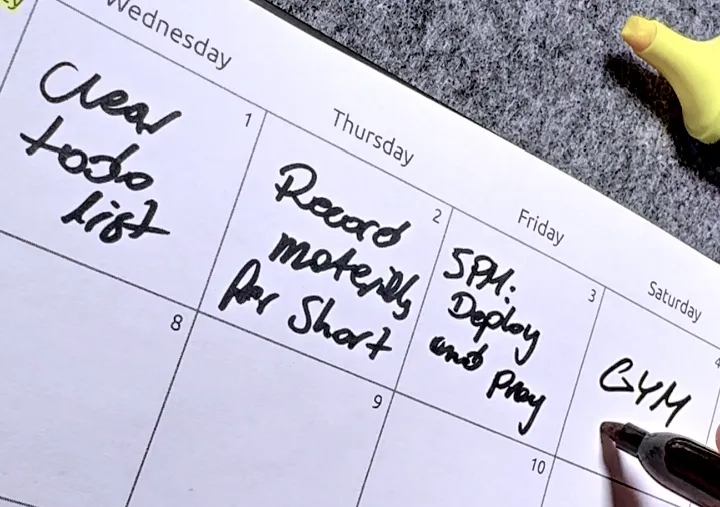 Wednesday
Thursday
Friday
Saturday
1
Clear
todo
list
2
Record
materials
for Short
3
5PM:
Deploy
and Pray
4
GYM
8
9
10